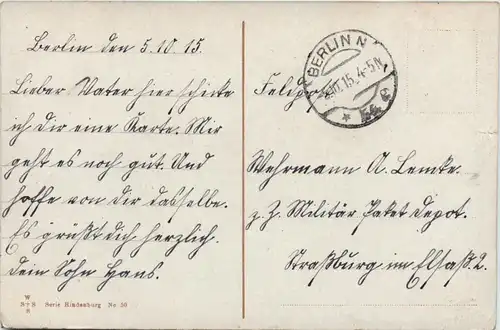 Berlin den 5.10.15.
Lieber Vater hier schicke
ich dir eine Karte. Mir
geht es noch gut. Und
hoffe von dir dasselbe.
Es grüßt dich herzlich
dein Sohn Hans.
W
S Serie Hindenburg No 30
S
BERLIN N
10.15. 4-5N
Feldpost
Wehrmann A. Lemke.
z. Z. Militär Paket Depot.
Straßburg im Elsaß. 2.